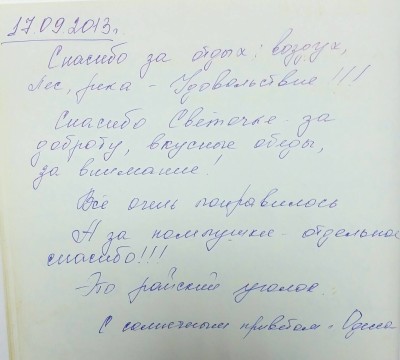 17.09.2013г.
Спасибо за отдых: воздух,
Лес, река - Удовольствие!!!
Спасибо Светочке за
доброту, вкусные обеды,
за внимание!
Всё очень понравилось
А за помпушки - отдельное
спасибо!!!
- Это райский уголок
С солнечным приветом - Одесса